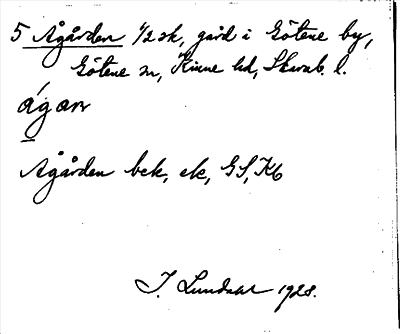 5 Ågården 1/2 sk, gård i Götene by,
Götene sn, Kinne hd, Skarab. l.
ágaɷ
Ågården bek, ek, GS, Kb
J. Lundahl 1928.